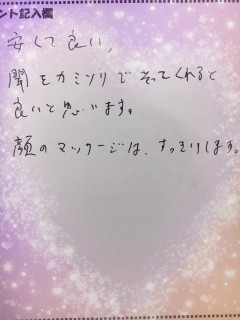 ント記入欄
安くて良い、
闇をカミソリでそってくれると
良いと思います。
顔のマッサージは、すっきりします。